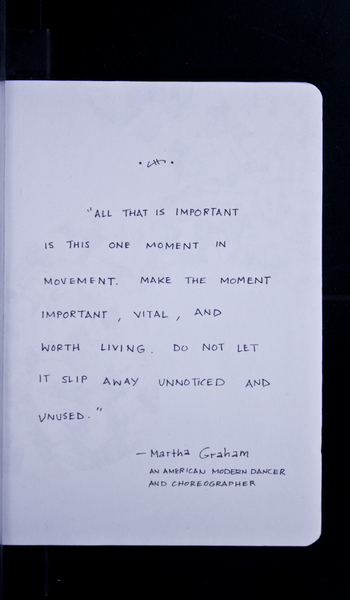 "ALL THAT IS IMPORTANT
IS THIS ONE MOMENT IN
MOVEMENT. MAKE THE MOMENT
IMPORTANT, VITAL, AND
WORTH LIVING. DO NOT LET
IT SLIP AWAY UNNOTICED AND
UNUSED."
— Martha Graham
AN AMERICAN MODERN DANCER
AND CHOREOGRAPHER